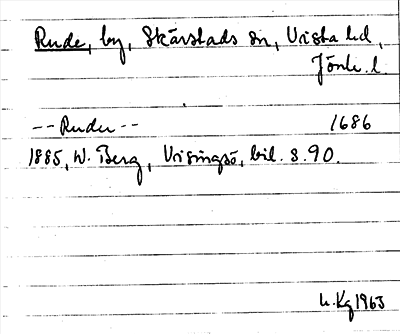 Rude, by, Skärstads sn, Vista hd,
Jönk. l.
-- Ruder -- 1686
1885, W. Berg, Visingsö, bil. s. 90.
L. Kg 1963